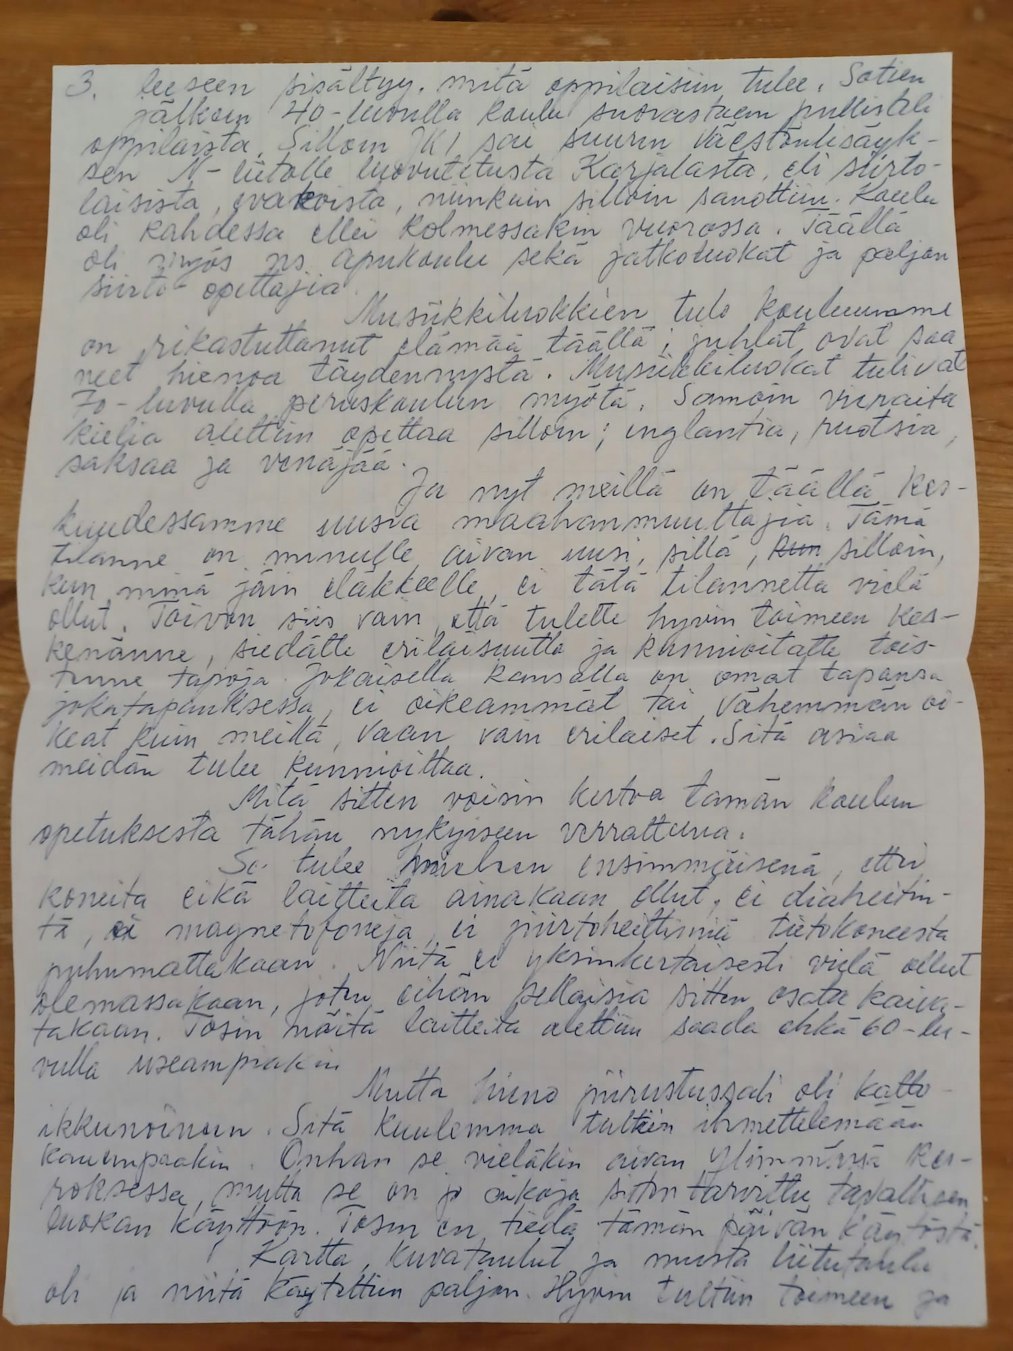 3. leeseen sisältyy. mitä oppilaisiin tulee. Sotien
jälkeen 40-luvulla koulu suorastaan pullisteli
oppilaista. Silloin sai suuren väestönlisäyk-
sen N-liitolle luovutetusta Karjalasta, eli siirto-
laisista, evakoista, niinkuin silloin sanottiin. Koulu
oli kahdessa ellei kolmessakin vuorossa. Täällä
oli myös ns. apukoulu sekä jatkoluokat ja paljon
siirto-opettajia.
Musiikkiluokkien tulo kouluumme
on rikastuttanut elämää täällä; juhlat ovat saa
neet hienoa täydennystä. Musiikkiluokat tulivat
70-luvulla peruskoulun myötä. Samoin vieraita
kieliä alettiin opettaa silloin; englantia, ruotsia,
saksaa ja venäjää.
Ja nyt meillä on täällä kes-
kuudessamme uusia maahanmuuttajia. Tämä
tilanne on minulle aivan uusi, sillä, kun silloin,
kun minä jäin eläkkeelle, ei tätä tilannetta vielä
ollut. Toivon siis vain, että tulette hyvin toimeen kes-
kenänne, siedätte erilaisuutta ja kunnioitatte tois-
tenne tapoja. Jokaisella kansalla on omat tapansa
jokatapauksessa, ei oikeammat tai vähemmän oi-
keat kuin meillä, vaan vain erilaiset. Sitä asiaa
meidän tulee kunnioittaa.
Mitä sitten voisin kertoa tämän koulun
opetuksesta tähän nykyiseen verrattuna.
Se tulee mieleen ensimmäisenä, ettei
koneita eikä laitteita ainakaan ollut, ei diaheitin-
tä, ei magnetofoneja, ei piirtoheittimiä tietokoneesta
puhumattakaan. Niitä ei yksinkertaisesti vielä ollut
olemassakaan, joten eihän sellaisia sitten osata kaiva-
takaan. Tosin näitä laitteita alettiin saada ehkä 60-lu-
vulla useampiakin
Mutta hieno piirustussali oli katto-
ikkunoineen. Sitä kuulemma tultiin ihmettelemään
kauempaakin. Onhan se vieläkin aivan ylimmässä ker-
roksessa, mutta se on jo aikoja sitten tarvittu tavallisen
luokan käyttöön. Tosin en tiedä tämän päivän käytöstä.
Kartta, kuvataulut ja musta liitutaulu
oli ja niitä käytettiin paljon. Hyvin tultiin toimeen ja